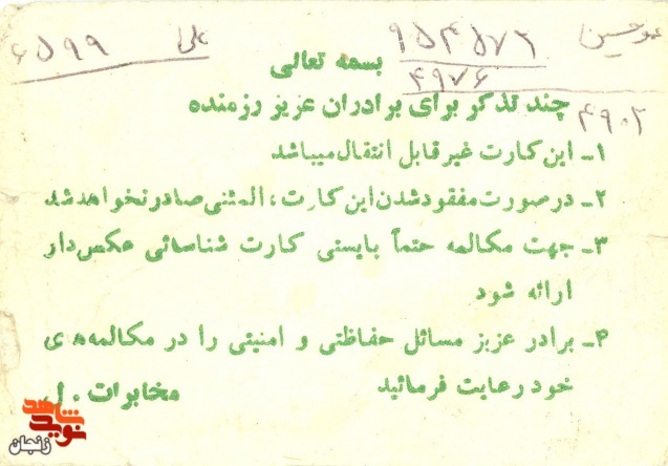 عمو حسین ۹۵۴۵۷۲ علی ۶۵۹۹
۴۹۷۶
۴۹۰۲
بسمه تعالی
چند تذکر برای برادران عزیز رزمنده
۱ـ این کارت غیر قابل انتقال میباشد
۲ـ در صورت مفقود شدن این کارت، المثنی صادر نخواهد شد
۳ـ جهت مکالمه حتماً بایستی کارت شناسائی عکس‌دار
ارائه شود
۴ـ برادر عزیز مسائل حفاظتی و امنیتی را در مکالمه‌های
خود رعایت فرمائید
مخابرات .
نوید شاهد
زنجان